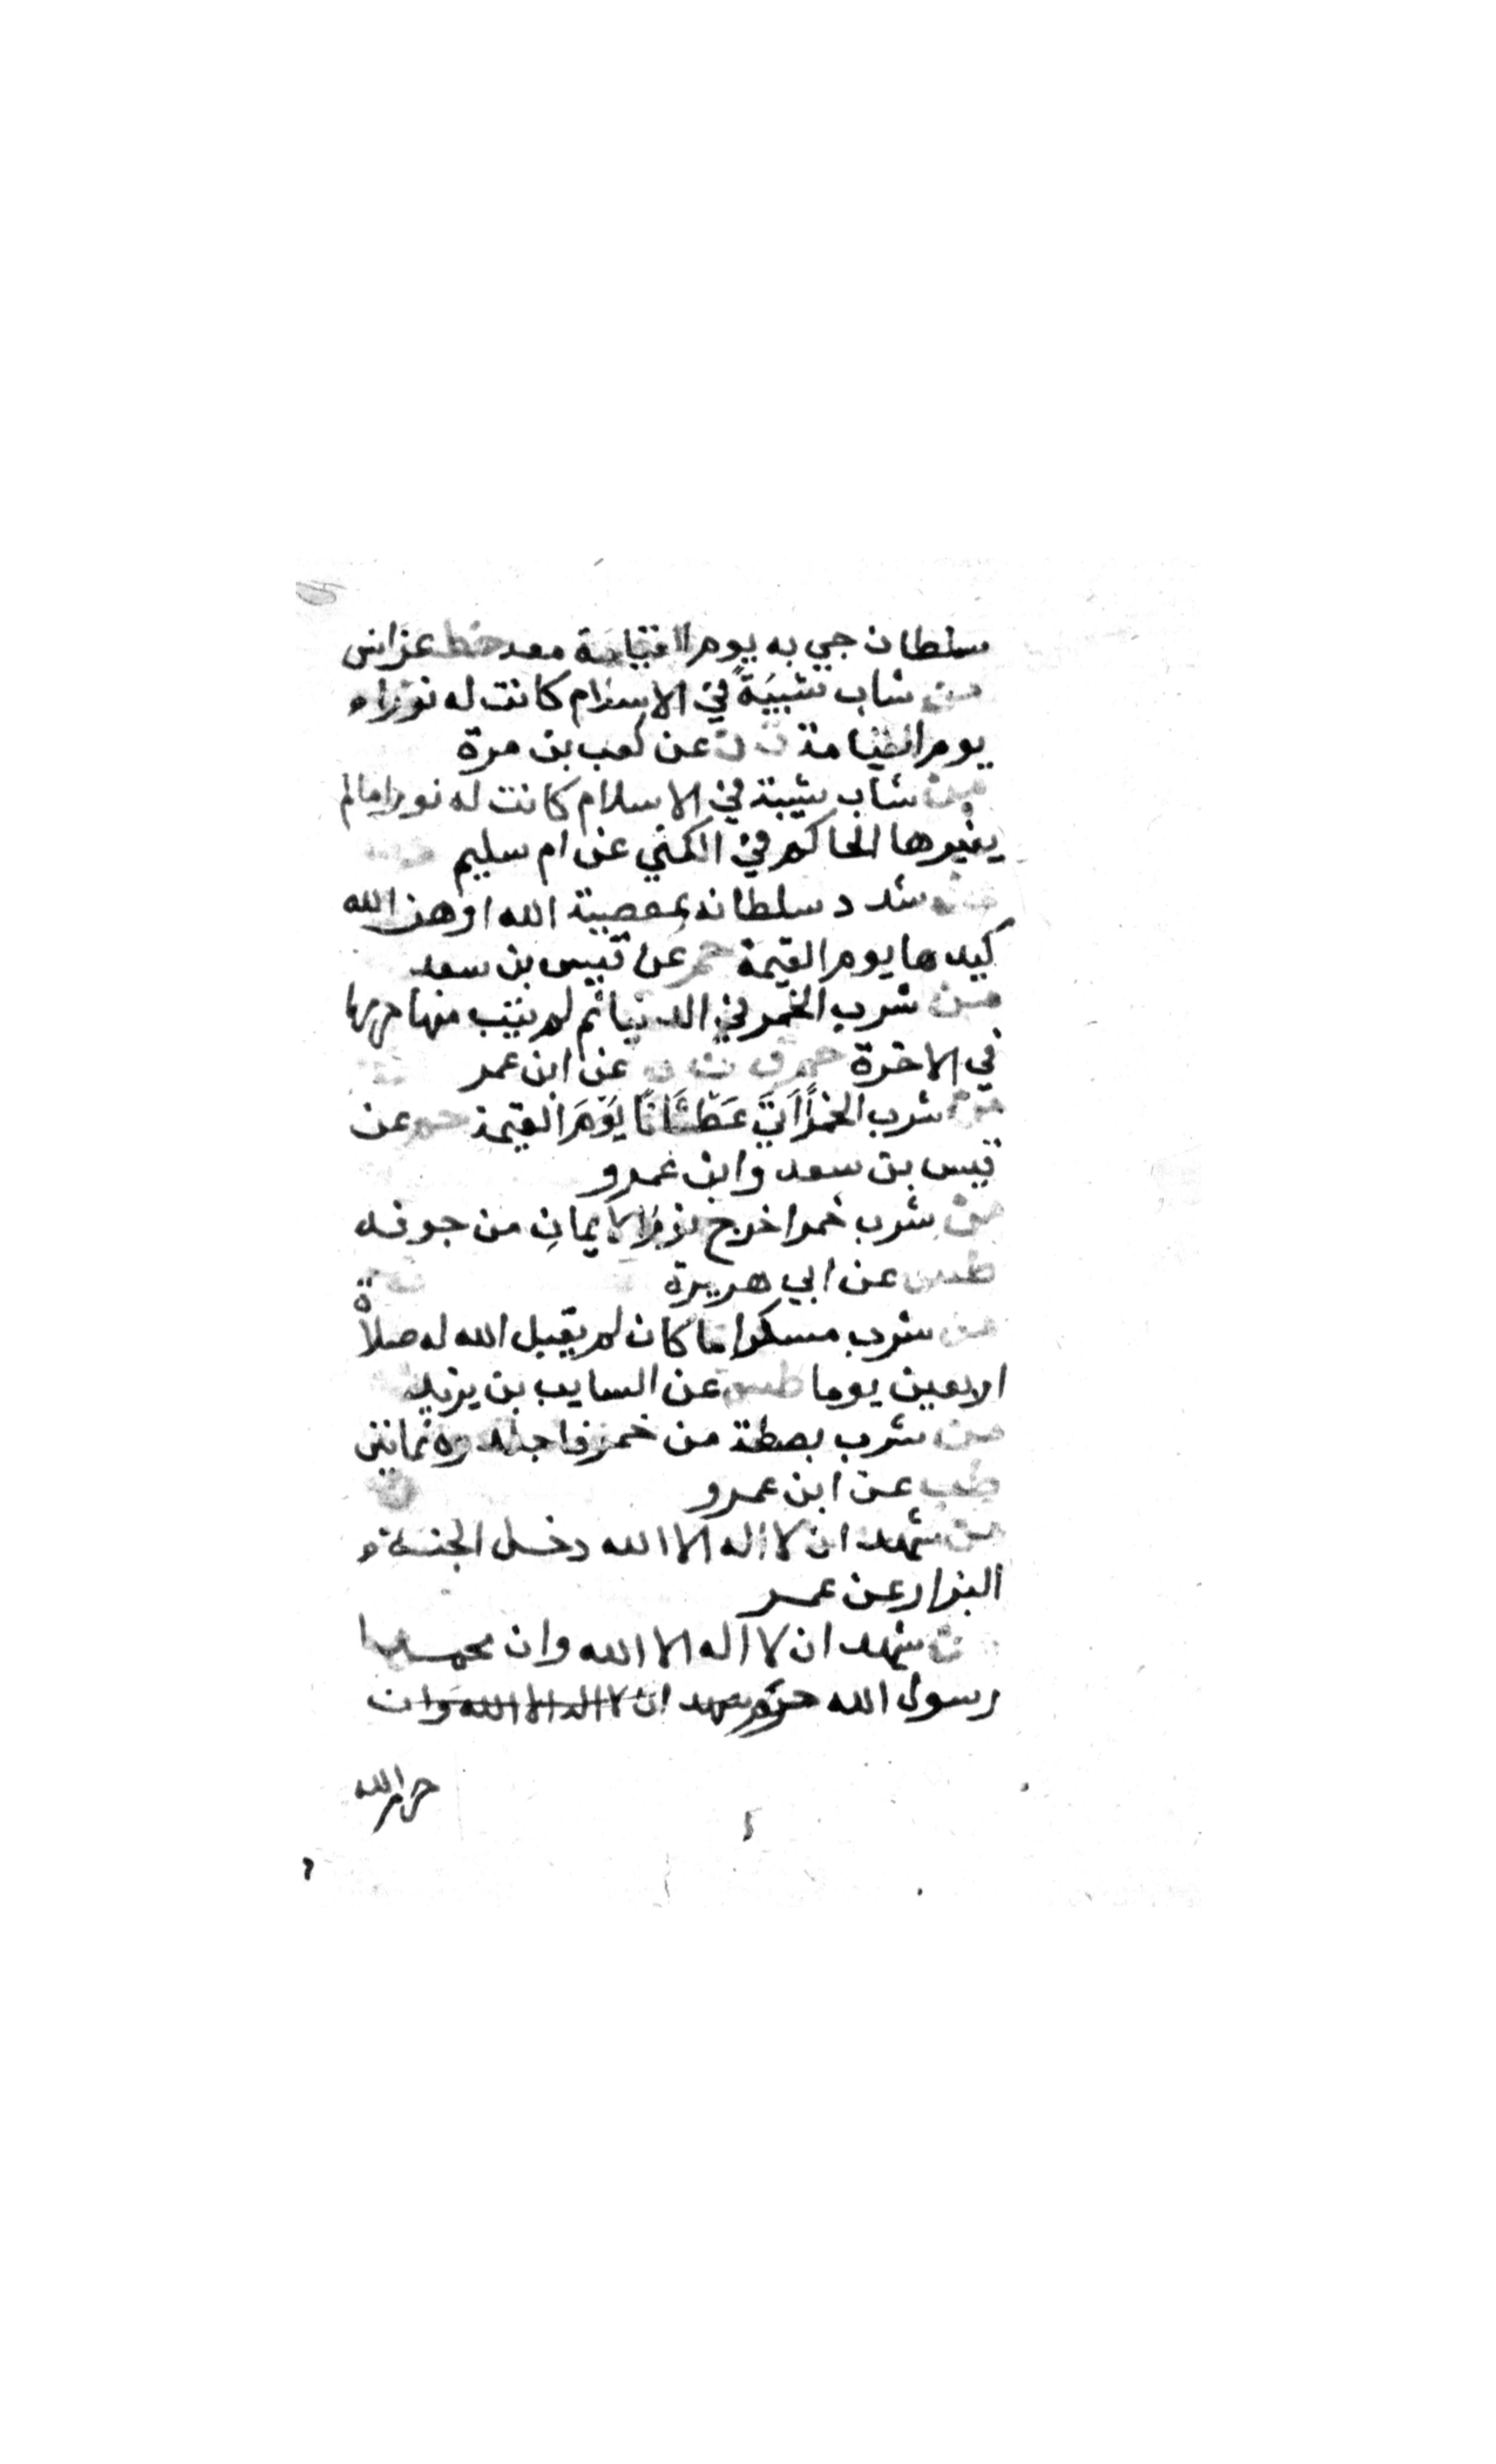 سلطان جي به يوم القيامة معه خط عن انس
من شاب شيبَةً في الاسلام كانت له نورا
يوم القيامة ت ن عن كعب بن مرة
من شاب شيبة في الاسلام كانت له نورا مالم
يغيرها الحاكم في الكني عن ام سليم
من شدد سلطانه بمعصية الله اوهن الله
كيده يوم القيمة حم عن قيس بن سعد
من شرب الخمر في الدنيا ثم لم يتب منها حرمها
في الاخرة حم ق ن ه عن ابن عمر
من شرب الخمر اَتَي عَطْشَانًا يَوْمَ القيمة حم عن
قيس بن سعد وابن عمرو
من شرب خمرا خرج نور الايمانِ من جوفه
طس عن ابي هريرة
من شرب مسكرا ما كان لم يقبل الله له صلاة
اربعين يوما طب عن السايب بن يزيد
من شرب بصطة من خمر فاجلدوه ثمانين
طب عن ابن عمرو
من شهد ان لا اله الا الله دخل الجنة
البزار عن عمر
من شهد ان لا اله الا الله وان محمدا
رسول الله حرم شهد ان لا اله الا الله وان
حرم الله